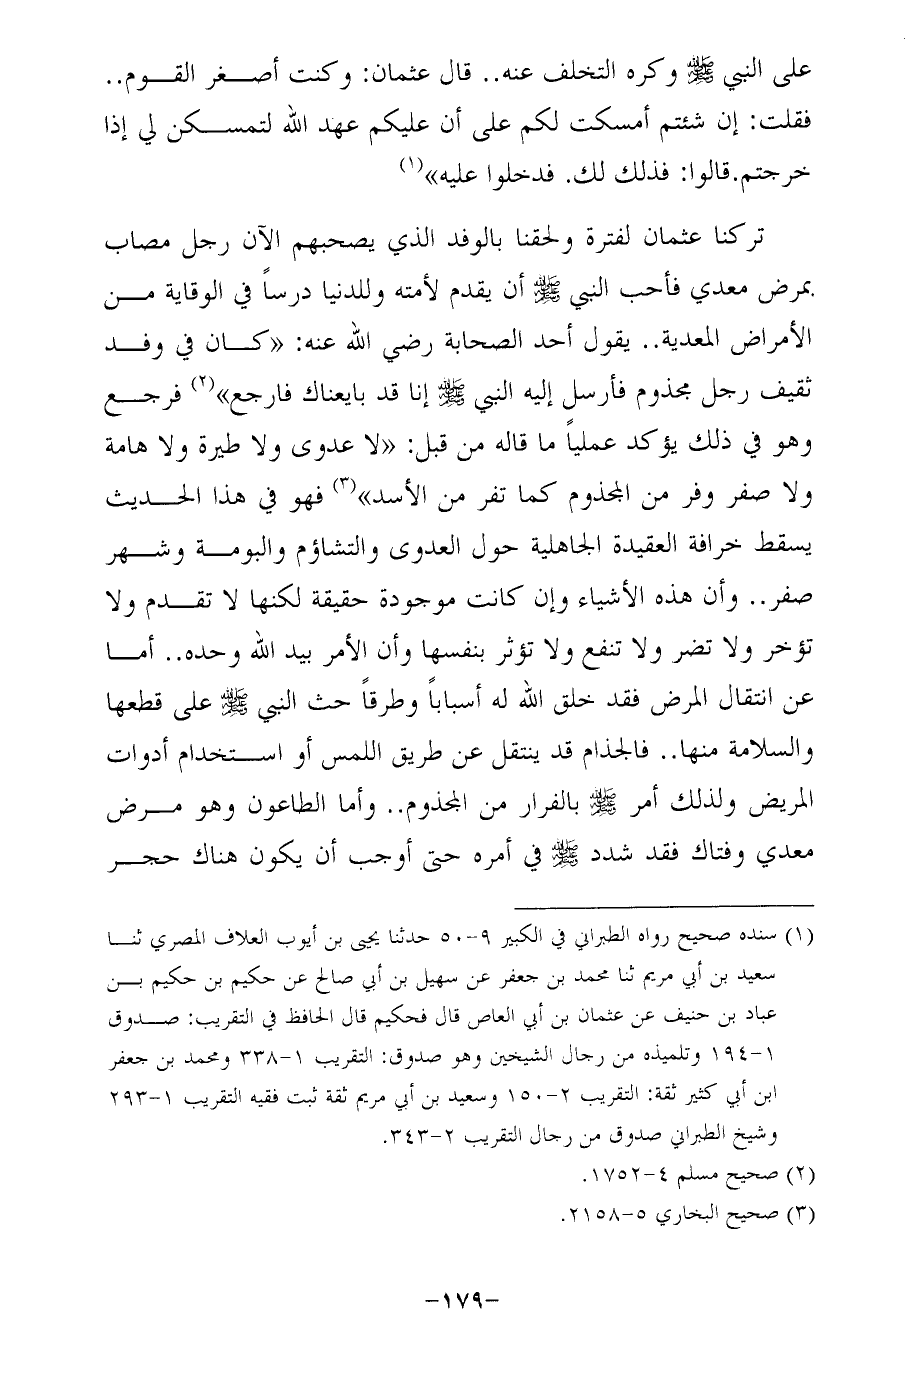 على النبي ﷺ وكره التخلف عنه.. قال عثمان: وكنت أصغر القوم..
فقلت: إن شئتم أمسكت لكم على أن عليكم عهد الله لتمسكن لي إذا
خرجتم.قالوا: فذلك لك. فدخلوا عليه»(١)
تركنا عثمان لفترة ولحقنا بالوفد الذي يصحبهم الآن رجل مصاب
بمرض معدي فأحب النبي ﷺ أن يقدم لأمته وللدنيا درساً في الوقاية من
الأمراض المعدية.. يقول أحد الصحابة رضي الله عنه: «كان في وفد
ثقيف رجل مجذوم فأرسل إليه النبي ﷺ إنا قد بايعناك فارجع»(٢) فرجع
وهو في ذلك يؤكد عملياً ما قاله من قبل: «لا عدوى ولا طيرة ولا هامة
ولا صفر وفر من المجذوم كما تفر من الأسد»(٣) فهو في هذا الحديث
يسقط خرافة العقيدة الجاهلية حول العدوى والتشاؤم والبومة وشهر
صفر.. وأن هذه الأشياء وإن كانت موجودة حقيقة لكنها لا تقدم ولا
تؤخر ولا تضر ولا تنفع ولا تؤثر بنفسها وأن الأمر بيد الله وحده.. أما
عن انتقال المرض فقد خلق الله له أسباباً وطرقاً حث النبي ﷺ على قطعها
والسلامة منها.. فالجذام قد ينتقل عن طريق اللمس أو استخدام أدوات
المريض ولذلك أمر ﷺ بالفرار من المجذوم.. وأما الطاعون وهو مرض
معدي وفتاك فقد شدد ﷺ في أمره حتى أوجب أن يكون هناك حجر
(١) سنده صحيح رواه الطبراني في الكبير ٩-٥٠ حدثنا يحيى بن أيوب العلاف المصري ثنا
سعيد بن أبي مريم ثنا محمد بن جعفر عن سهيل بن أبي صالح عن حكيم بن حكيم بن
عباد بن حنيف عن عثمان بن أبي العاص قال فحكيم قال الحافظ في التقريب: صدوق
١-١٩٤ وتلميذه من رجال الشيخين وهو صدوق: التقريب ١-٣٣٨ ومحمد بن جعفر
ابن أبي كثير ثقة: التقريب ٢-١٥٠ وسعيد بن أبي مريم ثقة ثبت فقيه التقريب ١-٢٩٣
وشيخ الطبراني صدوق من رجال التقريب ٢-٣٤٣.
(٢) صحيح مسلم ٤-١٧٥٢.
(٣) صحيح البخاري ٥-٢١٥٨.
-١٧٩-